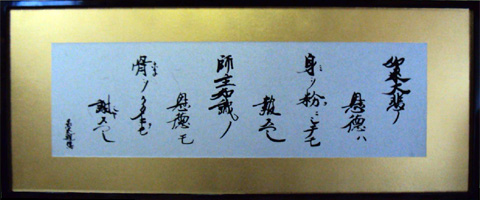 如来大悲ノ
恩徳ハ
身ヲ粉ニシテモ
報スベシ
師主知識ノ
恩徳モ
骨ヲクダキテモ
謝スベシ